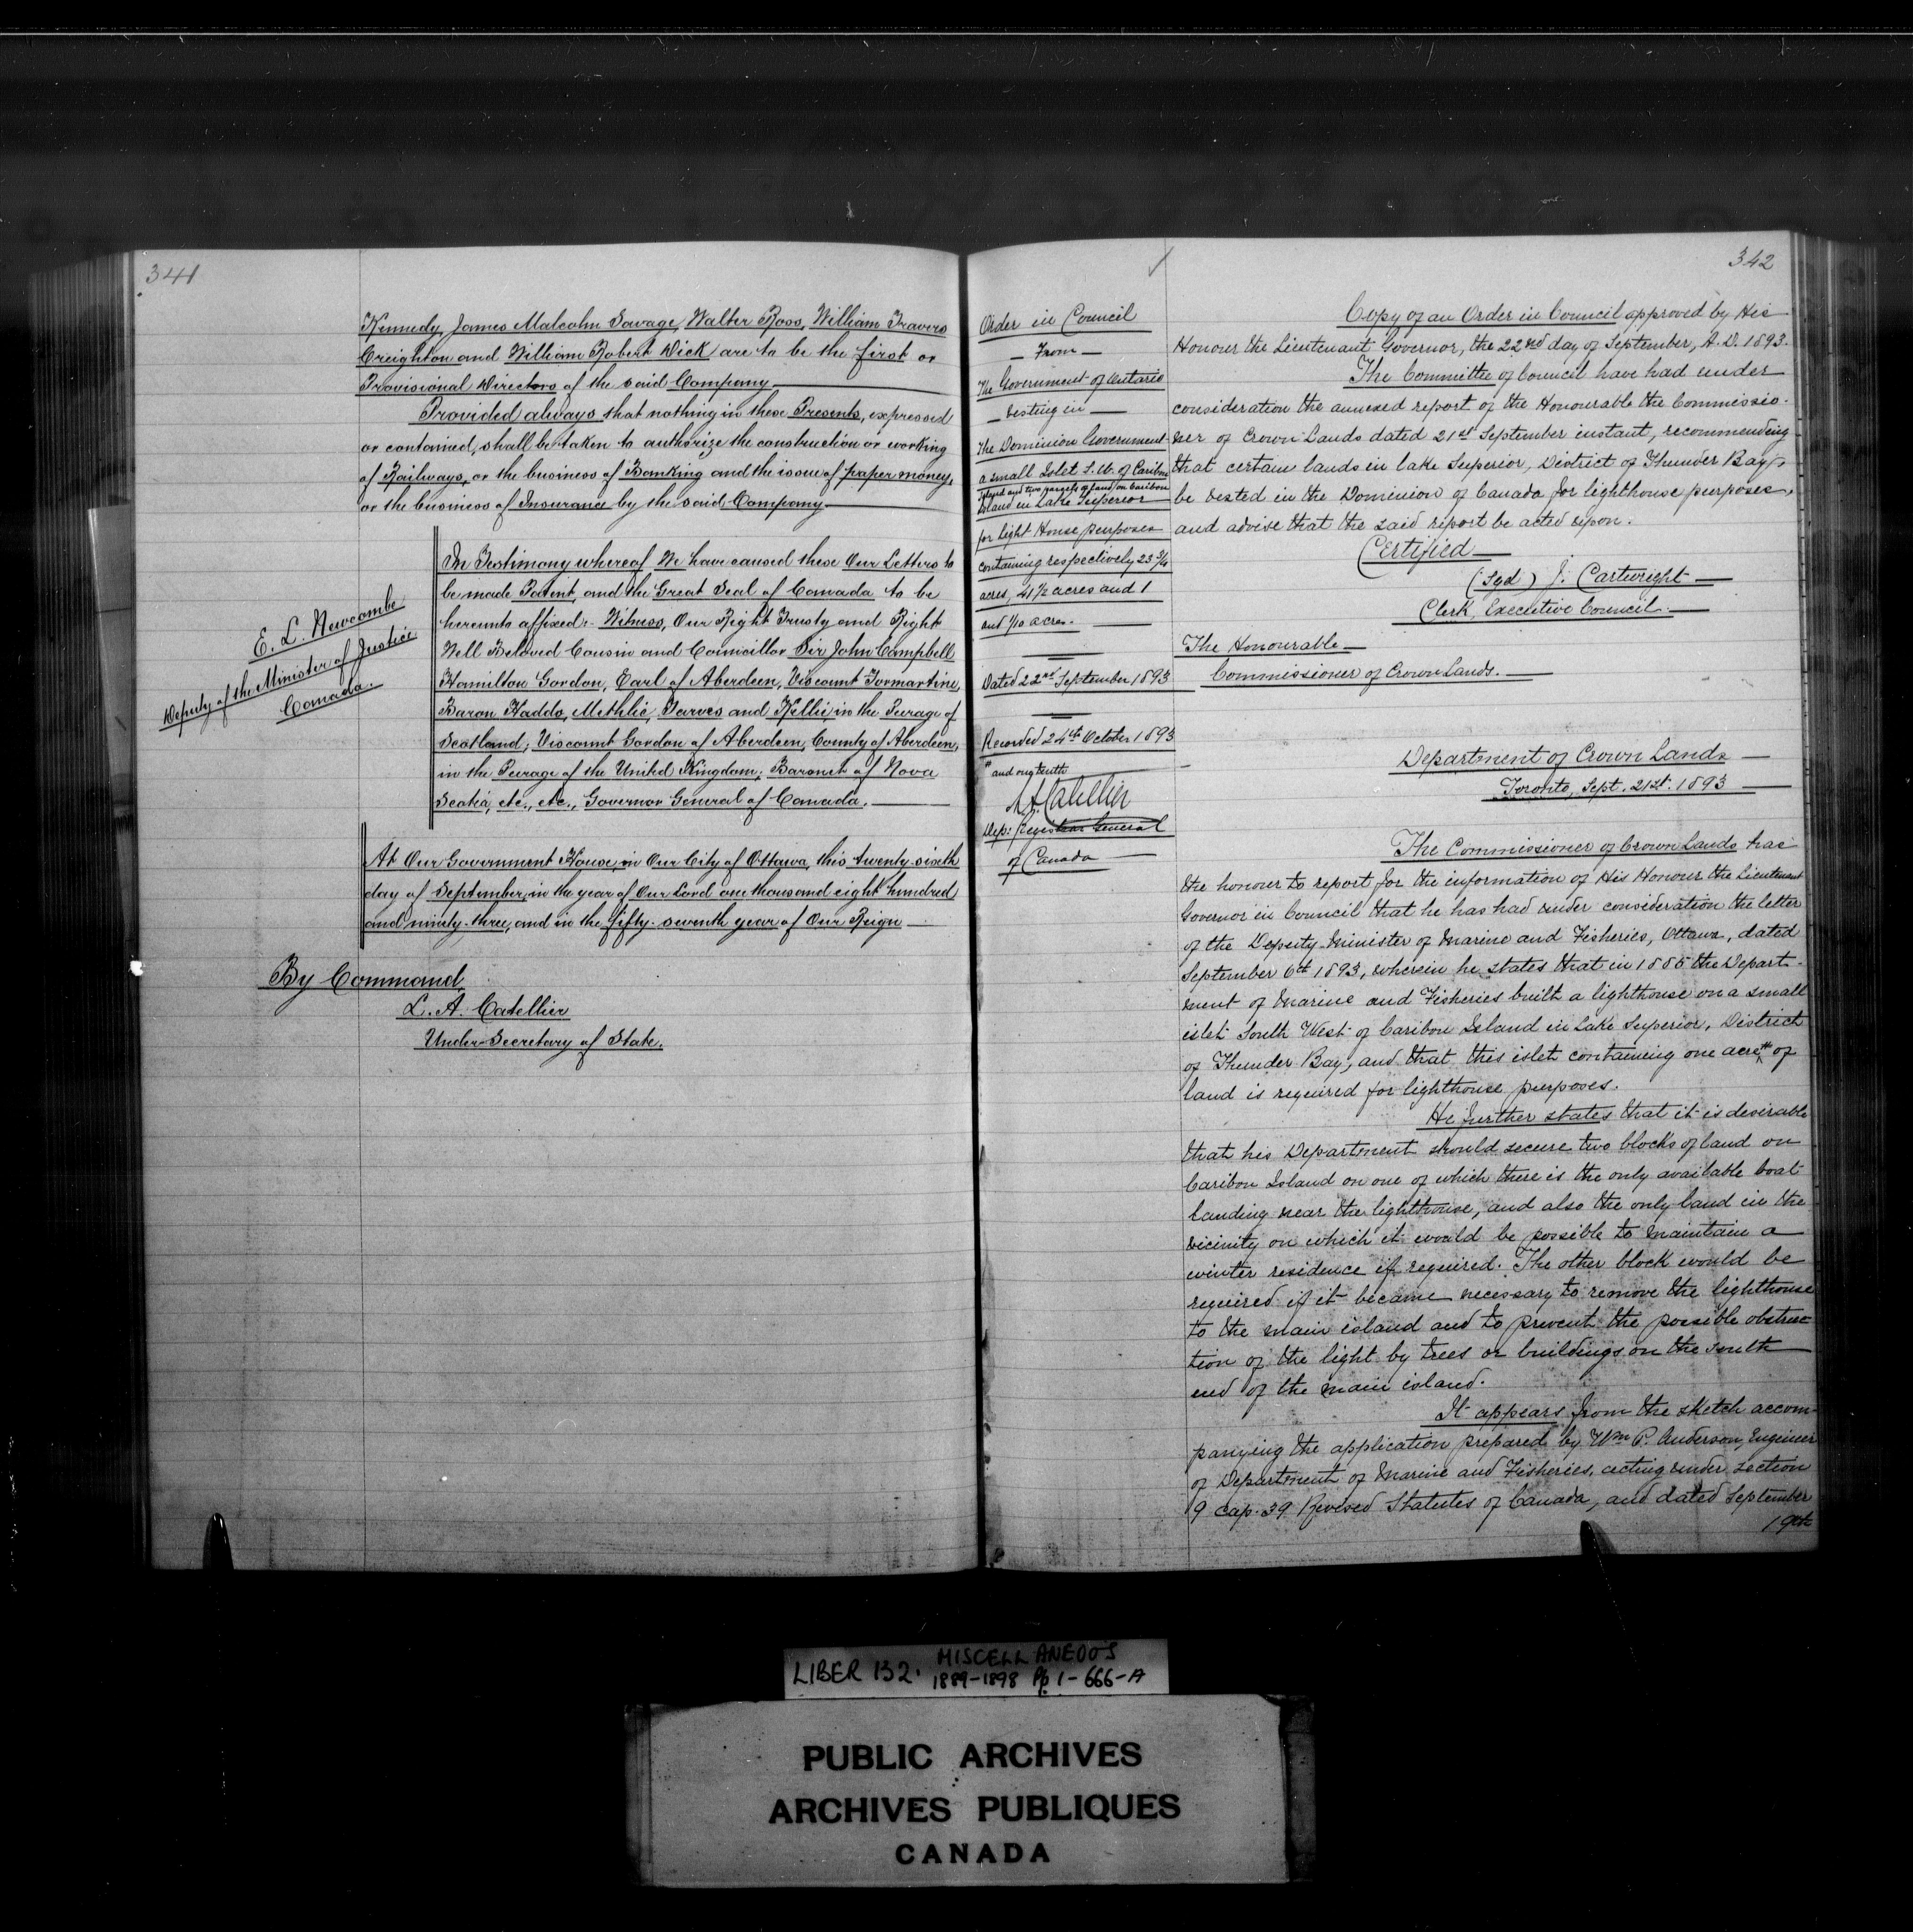 341
Kennedy, James Malcolm Savage, Walter Ross, William Travers
Creighton and William Robert Dick are to be the first or
Provisional Directors of the said Company
Provided always that nothing in these Presents, expressed
or contained, shall be taken to authorize the construction or working
of Railways, or the business of Banking and the issue of paper money,
or the business of Insurance by the said Company
In Testimony whereof We have caused these Our Letters to
be made Patent, and the Great Seal of Canada to be
hereunto affixed:- Witness, Our Right Trusty and Right
Well Beloved Cousin and Councillor Sir John Campbell
Hamilton Gordon, Earl of Aberdeen, Viscount Formartine,
Baron Haddo, Methlic, Tarves and Kellie, in the Peerage of
Scotland; Viscount Gordon of Aberdeen, County of Aberdeen,
in the Peerage of the United Kingdom; Baronet of Nova
Scotia, etc., etc., Governor General of Canada.
E. L. Newcombe
Deputy of the Minister of Justice
Canada.
At Our Government House, in Our City of Ottawa, this twenty-sixth
day of September, in the year of Our Lord one thousand eight hundred
and ninety-three, and in the fifty-seventh year of Our Reign
By Command,
L. A. Catellier
Under-Secretary of State.
342
Order in Council
- From -
The Government of Ontario
vesting in
the Dominion Government
a small Islet S.W. of Caribou
Island and two parcels of land on Caribou
Island in Lake Superior
for Light House purposes
containing respectively 23 3/4
acres, 41 1/2 acres and 1
and 1/10 acres.
Dated 22nd September 1893
Recorded 24th October 1893
# and one tenth
L. A. Catellier
Dep: Registrar General
of Canada
Copy of an Order in Council approved by His
Honour the Lieutenant Governor, the 22nd day of September, A.D. 1893.
The Committee of Council have had under
consideration the annexed report of the Honourable the Commissio-
ner of Crown Lands dated 21st September instant, recommending
that certain lands in lake Superior, District of Thunder Bay,
be vested in the Dominion of Canada for lighthouse purposes,
and advise that the said report be acted upon.
Certified
(Sgd) J. Cartwright
Clerk, Executive Council.
The Honourable
Commissioner of Crown Lands.
Department of Crown Lands
Toronto, Sept. 21st. 1893
The Commissioner of Crown Lands has
the honour to report for the information of His Honour the Lieutenant
Governor in Council that he has had under consideration the letter
of the Deputy Minister of Marine and Fisheries, Ottawa, dated
September 6th 1893, wherein he states that in 1885 the Depart-
ment of Marine and Fisheries built a lighthouse on a small
islet South West of Caribou Island in Lake Superior, District
of Thunder Bay, and that this islet containing one acre # of
land is required for lighthouse purposes.
He further states that it is desirable
that his Department should secure two blocks of land on
Caribou Island on one of which there is the only available boat
landing near the lighthouse, and also the only land in the
vicinity on which it would be possible to maintain a
winter residence if required. The other block would be
required if it became necessary to remove the lighthouse
to the main island and to prevent the possible obstruc-
tion of the light by trees or buildings on the south
end of the main island.
It appears from the sketch accom-
panying the application prepared by Wm P. Anderson, Engineer
of Department of Marine and Fisheries, acting under section
9 cap. 39 Revised Statutes of Canada, and dated September
19th
LIBER 132. MISCELLANEOUS
1889-1898 Pp 1-666-A
PUBLIC ARCHIVES
ARCHIVES PUBLIQUES
CANADA